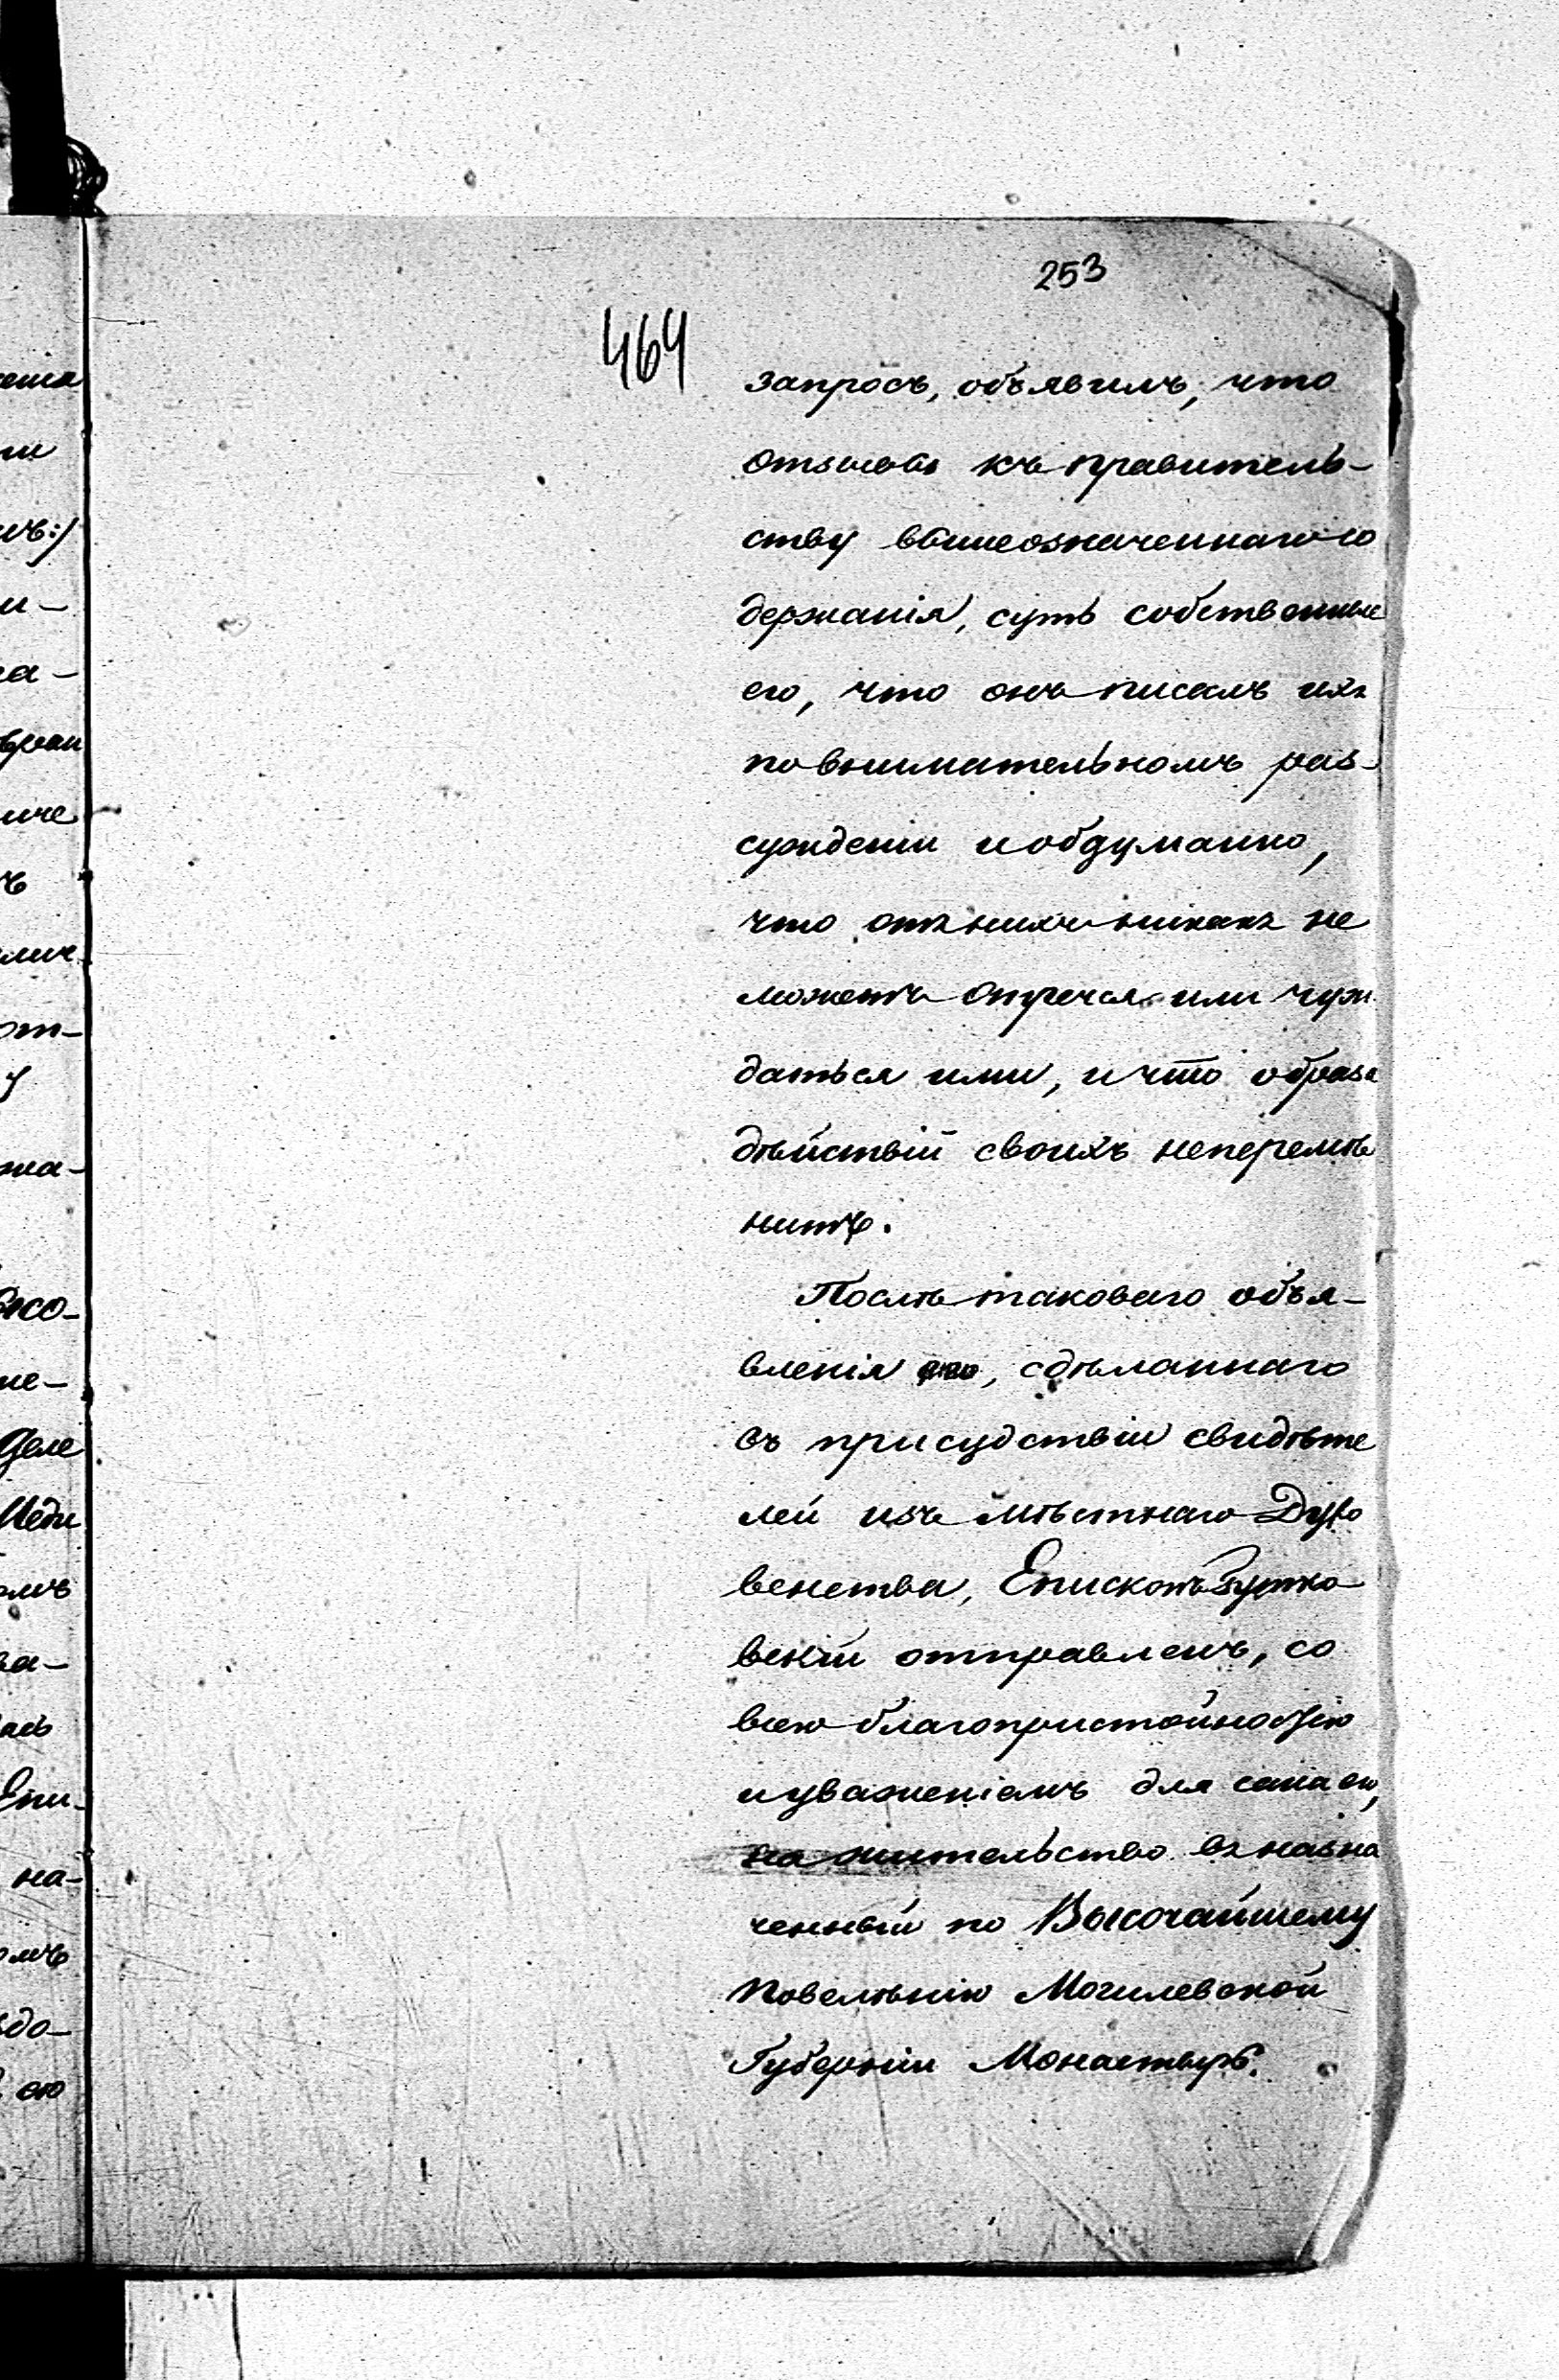 253
464
запросъ, объявилъ, что
отзывы къ правитель-
ству вышеозначеннаго со
держанія, суть собственные
его, что онъ писалъ ихъ
по внимательномъ раз-
сужденіи и обдуманно,
что отъ нихъ никакъ не
можетъ отречся или чуж
даться ими, и что образа
дѣйствій своихъ неперемѣ
нитъ.
Послѣ таковаго объя-
вленія его, сдѣланнаго
въ присудствіи свидѣте
лей изъ мѣстнаго Духо
венства, Епископъ Гутко
вскій отправленъ, со
всею благопристойностію
и уваженіемъ для сана его,
на жительство въ назна
ченный по Высочайшему
повелѣнію Могилевской
Губерніи Монастырь.